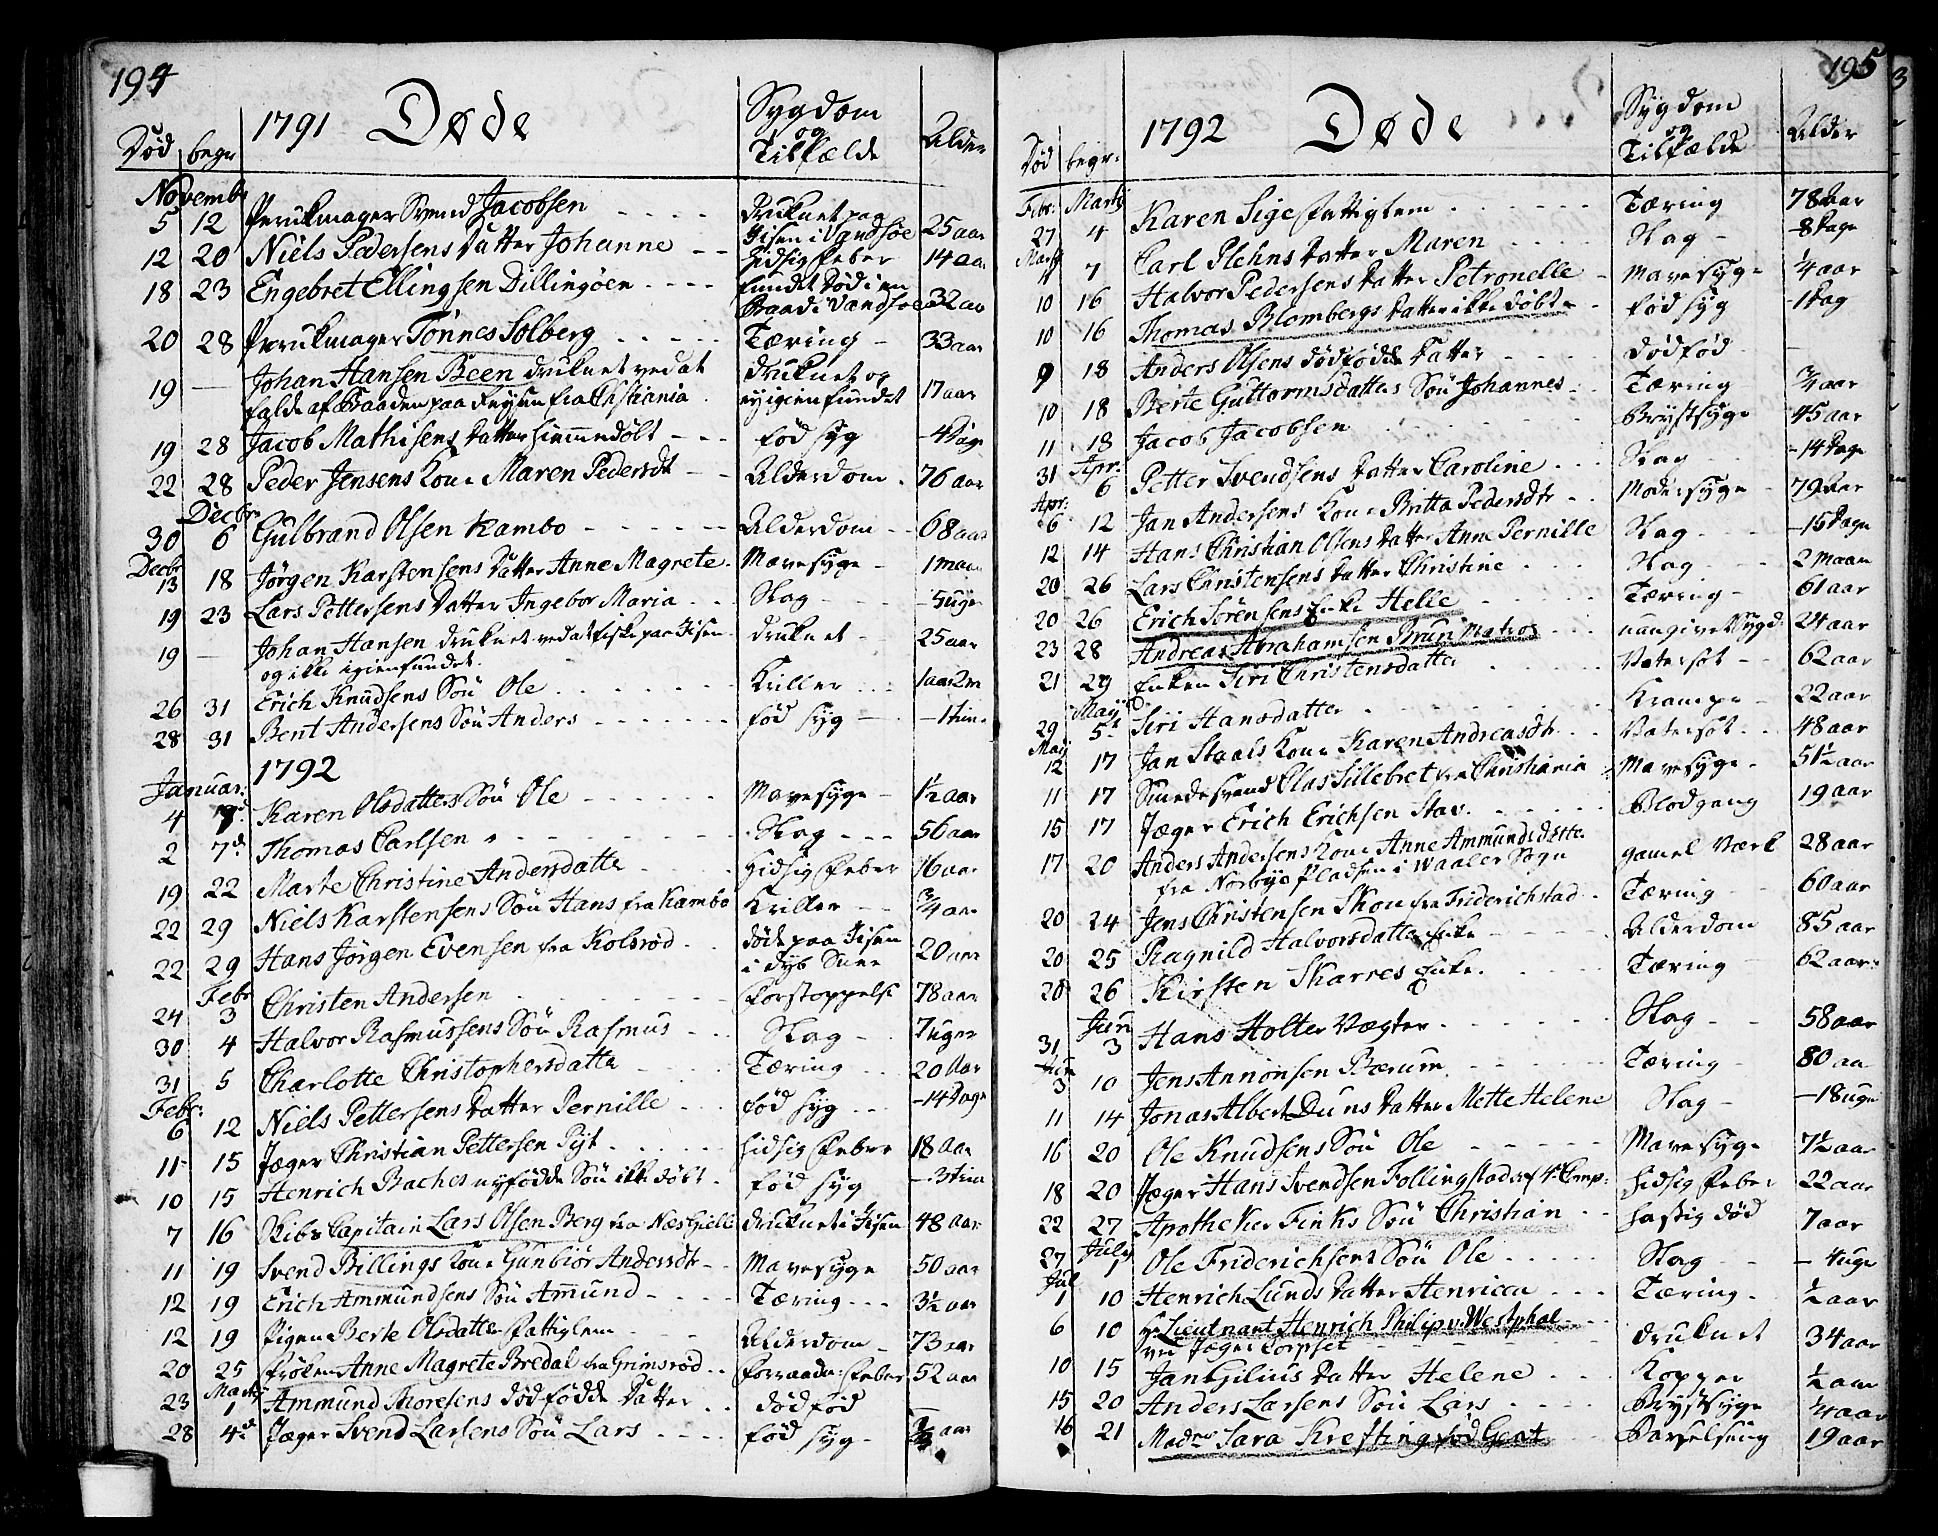 194
1791 Døde
Sygdom
og
Tilfælde
Alder
Død begr
Novembr
5 12 Perukmager Svend Jacobsen druknet paa Iisen i Vandsøe 25 aar
12 20 Niels Pedersens Datter Johanne Hidsig Feber 14 aar
18 23 Engebret Ellingsen Dillingøen fundet Død i en Baad i Vandsøe 32 aar
20 28 Perukmager Tønnes Solberg Tæring 33 aar
19 — Johan Hansen Been druknet ved at druknet og 17 aar
falde af Baaden paa Reysen fra Chstiania ey igienfundet
19 28 Jacob Mathisens Datter hiemmedøbt fød syg 4 Dage
22 28 Peder Jensens Kone Maren Pedersdt Alderdom 76 aar
Decbr
30 6 Gulbrand Olsen Kambo Alderdom 68 aar
Decbr
13 18 Jørgen Karstensens Datter Anne Magrete Mavesyge 1 maan
19 23 Lars Pettersens Datter Ingebor Maria Slag 5 uger
19 — Johan Hansen druknet ved at fiske paa Iisen druknet 25 aar
og ikke igienfundet.
26 31 Erich Knudsens Søn Ole Kriller 1 aar 2 m
28 31 Bent Andersens Søn Anders fød syg 1 time
1792
Januar:
4 7d Karen Olsdatters Søn Ole Mavesyge 1½ aar
2 7d Thomas Carlsen Slag 56 aar
19 22 Marte Christine Andersdatter Hidsig Feber 16 aar
22 29 Niels Karstensens Søn Hans fra Kambo Kriller ¾ aar
22 29 Hans Jørgen Evensen fra Kolsrød døde paa Iisen i dyb Snee 20 aar
Febr
24 3 Christen Andersen Forstoppelse 78 aar
30 4 Halvor Rasmussens Søn Rasmus Slag 7 uger
31 5 Charlotte Christophersdatter Tæring 20 Aar
Febr:
6 12 Niels Pettersens Datter Pernille fød syg 14 Dage
11 15 Jæger Christian Pettersen Pijt Hidsig Feber 18 Aar
10 15 Henrich Baches nyfødde Søn ikke døbt fød syg 3 time
7 16 Skibs Capitain Lars Olsen Berg fra NæsGielle druknet i Iisen 48 Aar
11 19 Svend Billings Kone Gunbiør Andersdtr Mavesyge 50 aar
12 19 Erich Ammundsens Søn Amund Tæring 3½ aar
12 19 Pigen Berte Olsdatter Fattiglem Alderdom 73 aar
20 25 Frøken Anne Magrete Bredal fra Grimsrød Forraadn: Feber 52 aar
Martj
23 1 Ammund Thoresens død fødde Datter dødfød
28 4d Jæger Svend Larsens Søn Lars fød syg aar
195
1792 Døde
Sygdom
og
Tilfælde
Alder
Død begr:
Febr: Martj
27 4 Karen Sige Fattiglem Tæring 78 Aar
Martj
4 7 Carl Plehns Datter Maren Slag 8 Dage
10 16 Halvor Pedersens Datter Petronelle Mavesyge ¼ aar
10 16 Thomas Blombergs Datter ikke døbt fød syg 1 Dag
9 18 Anders Olsens dødfødde Datter Dødfød
10 18 Berte Guttormsdatters Søn Johannes Tæring ¾ aar
11 18 Jacob Jacobsen Brystsyge 45 aar
Apr:
31 6 Petter Svendsens Datter Caroline Slag 14 Dage
Apr:
6 12 Jan Andersens Kone Britta Pedersdtr Modersyge 79 Aar
12 14 Hans Christian Olsens Datter Anne Pernille Slag 15 Dage
20 26 Lars Christensens Datter Christine Slag 2 maan
20 26 Erich Sørensens Enke Helle Tæring 61 aar
23 28 Andreas Abrahamsen Brun Matros uangivet Sygd: 24 aar
21 29 Enken Siri Christensdatter Vatersot 62 aar
Maij
29 5t Siri Hansdatter Krampe 22 aar
Maij
12 17 Jan Staals Kone Karen Andreasdtr Vatersot 48 aar
11 17 Smedesvend Clas Sillebret fra Christiania Mavesyge 51½ aar
15 17 Jæger Erich Erichsen Stav. Blodgang 19 aar
17 20 Anders Andersens Kone Anne Ammundsdatter gamel Værk 28 aar
fra Norbye Pladsen i Waaler Sogn
20 24 Jens Christensen Skou fra Friderichstad Tæring 60 aar
20 25 Ragnild Halvorsdatter Enke Alderdom 85 aar
20 26 Kirsten Skarres Enke. Tæring 62 aar
Jun
31 3 Hans Holter Vægter Slag 58 aar
Jun
3 10 Jens Annonsen Bærum Tæring 80 aar
11 14 Jonas Albert Duns Datter Mette Helene Slag 18 uger
16 20 Ole Knudsens Søn Ole Mavesyge 7½ aar
18 20 Jæger Hans Svendsen Follingstad af 4 Comp: Hidsig Feber 22 aar
22 27 Apotheker Finks Søn Christian Hastig død 7 aar
July
27 1 Ole Friderichsens Søn Ole Slag 4 uger
Jul
1 10 Henrich Lunds Datter Henricca Tæring ½ aar
6 10 Hr Lieutnant Henrich Philip v: Westphal druknet 34 aar
ved Jæger Corpset
10 15 Jan Gilius Datter Helene Kopper ½ aar
15 20 Anders Larsens Søn Lars Brystsyge ¼ aar
16 21 Madme Sara Krefting fød Gent Barselseng 19 aar